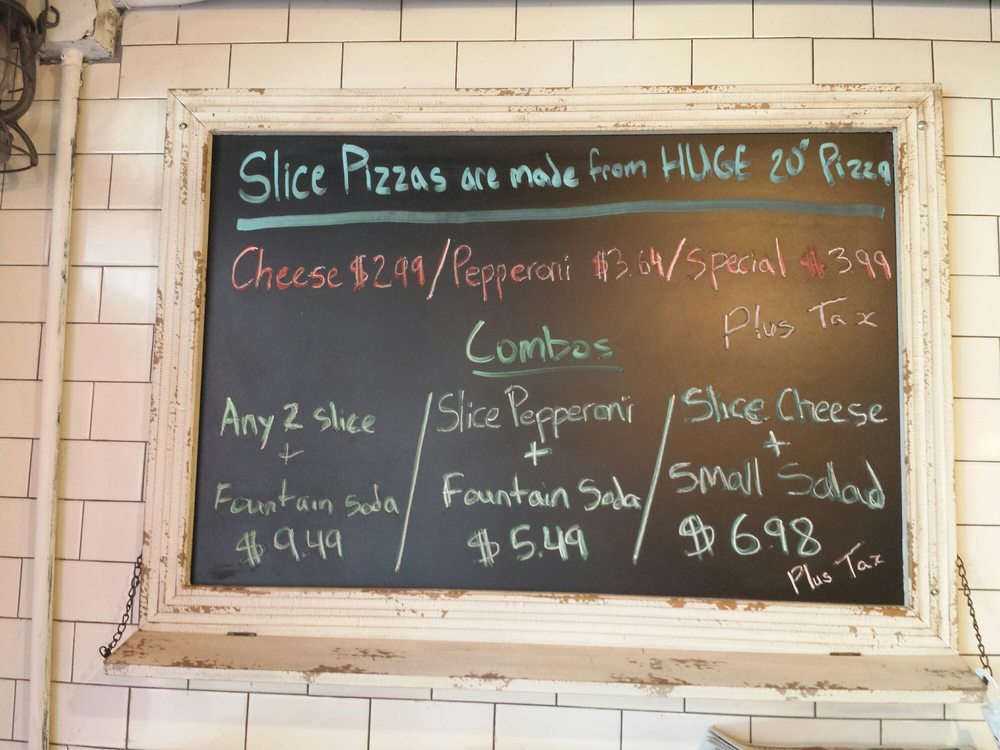 Slice Pizzas are made from HUGE 20" Pizza
Cheese $2.99/Pepperoni $3.64/Special $3.99
Plus Tax
Combos
Any 2 slice
+
Fountain Soda
$9.49
/
Slice Pepperoni
+
Fountain Soda
$5.49
/
Slice Cheese
+
Small Salad
$6.98
Plus Tax